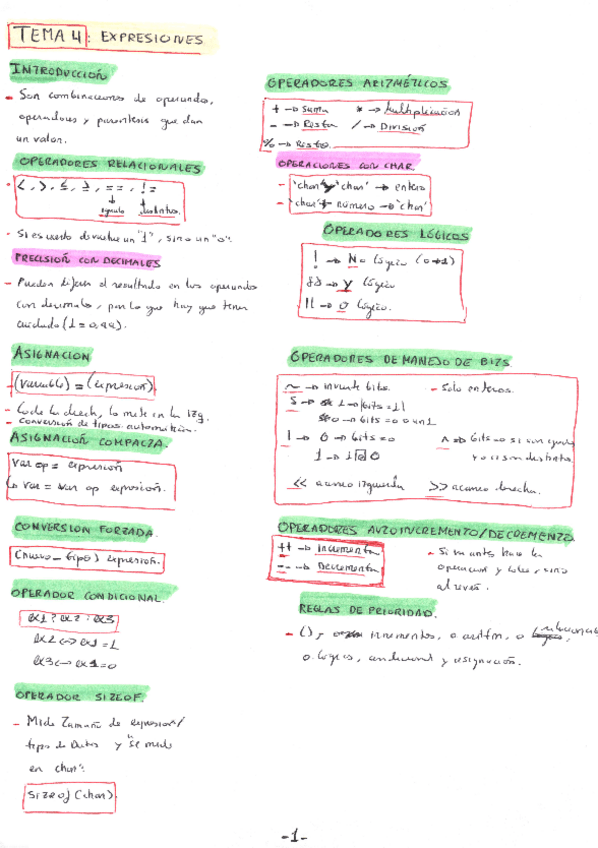 TEMA 4: EXPRESIONES
INTRODUCCIÓN
- Son combinaciones de operandos,
operadores y parentesis que dan
un valor.
OPERADORES RELACIONALES
<, >, ≤, ≥, ==, !=
igualdad distintos.
- Si es cierto devuelve un "1", sino un "0".
PRECISIÓN CON DECIMALES
- Pueden el resultado en los operandos
con decimales, por lo que hay que tener
cuidado (1 = 0,99).
ASIGNACION
- (variable) = (expresión).
- la drech, lo mete en la izq.
- conversión de tipos automática.
ASIGNACIÓN COMPACTA.
var op = expresión
↳ var = var op expresión.
CONVERSION FORZADA.
(nuevo_tipo) expresión.
OPERADOR CONDICIONAL.
ex1 ? ex2 : ex3
ex2 <-> ex1 = 1
ex3 <-> ex1 = 0
OPERADOR SIZEOF.
- Mide Tamaño de expresión/
tipo de Datos y "se mide
en char".
sizeof (char)
OPERADORES ARIZMÉTICOS
+ → Suma * → Multiplicación
- → Resta / → División
% → Resto.
OPERACIONES CON CHAR.
- 'char' 'char' → entero
- 'char' + número → 'char'
OPERADORES LÓGICOS
! → No lógico (0→1)
&& → y lógico
|| → o lógico.
OPERADORES DE MANEJO DE BITS.
~ → invierte bits. - Solo enteros.
1 → bits = 11
0 → bits = 0 0 un 1
| → 0 → bits = 0 ^ → bits = 0 si son iguales
1 → 1 0 y 1 si son distintos.
<< avance izquierda >> avance derecha.
OPERADORES AUTOINCREMENTO/DECREMENTO
++ → Incrementa
-- → Decrementa
- Si va antes hace la
operacion y , sino
al revés.
REGLAS DE PRIORIDAD.
- (), incrementos, o aritm, o relacionales
o. logicos, condicional y asignación.
-1-